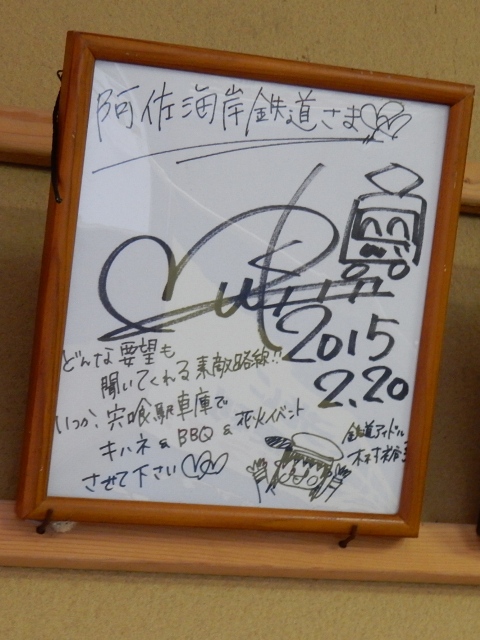 阿佐海岸鉄道さま
2015
2.20
どんな要望も
聞いてくれる素敵路線!!
いつか、宍喰駅車庫で
キハネ & BBQ & 花火イベント
させて下さい
鉄道アイドル
木村裕子